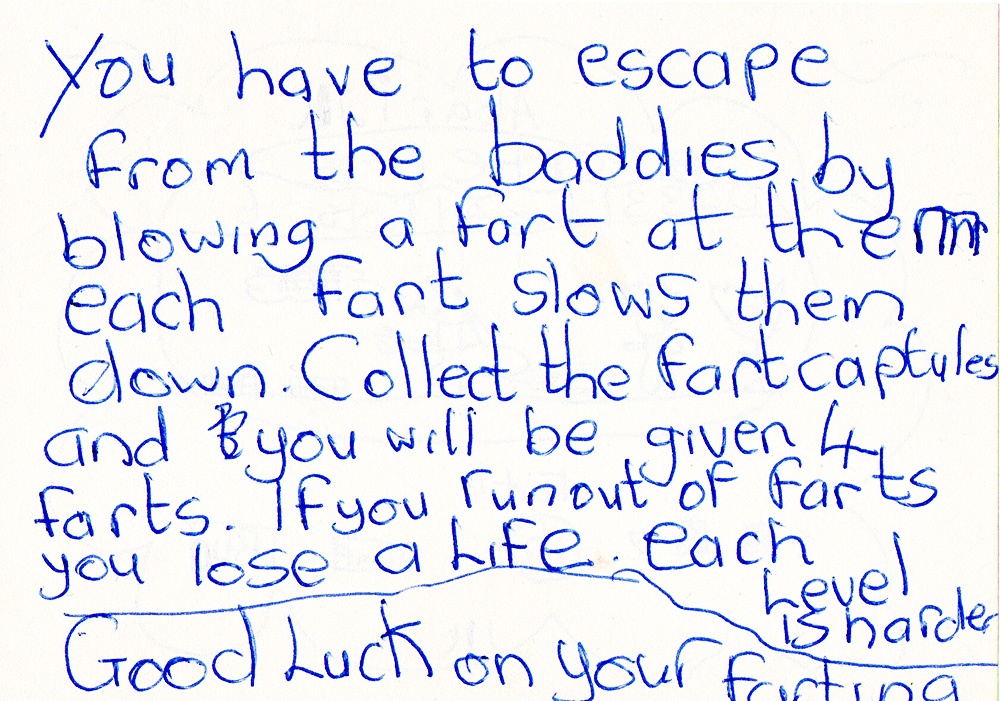 You have to escape
from the baddies by
blowing a fart at them
each fart slows them
down. Collect the fart captules
and you will be given 4
farts. If you run out of farts
you lose a Life. each
Level
is harder
Good Luck on your farting